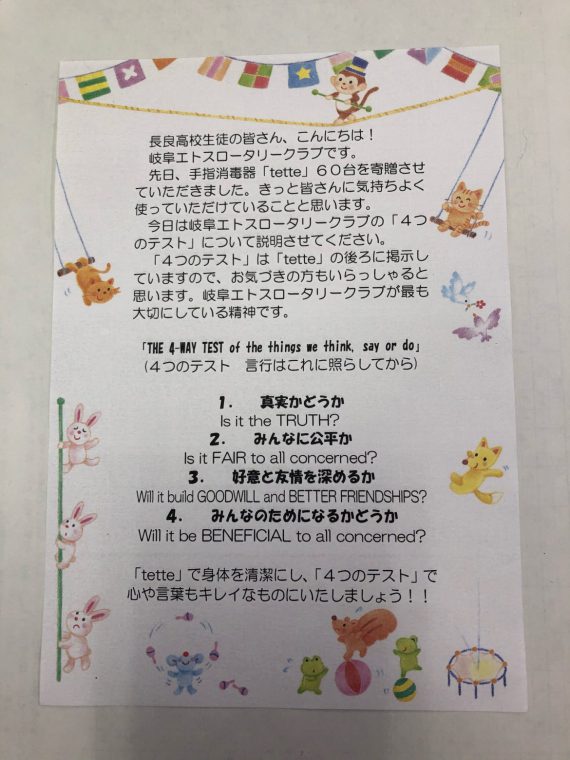 長良高校生徒の皆さん、こんにちは！
岐阜エトスロータリークラブです。
先日、手指消毒器「tette」６０台を寄贈させ
ていただきました。きっと皆さんに気持ちよく
使っていただけていることと思います。
今日は岐阜エトスロータリークラブの「４つ
のテスト」について説明させてください。
「４つのテスト」は「tette」の後ろに掲示し
ていますので、お気づきの方もいらっしゃると
思います。岐阜エトスロータリークラブが最も
大切にしている精神です。
「THE 4-WAY TEST of the things we think, say or do」
(４つのテスト　言行はこれに照らしてから)
１．　真実かどうか
Is it the TRUTH?
２．　みんなに公平か
Is it FAIR to all concerned?
３．　好意と友情を深めるか
Will it build GOODWILL and BETTER FRIENDSHIPS?
４．　みんなのためになるかどうか
Will it be BENEFICIAL to all concerned?
「tette」で身体を清潔にし、「４つのテスト」で
心や言葉もキレイなものにいたしましょう！！